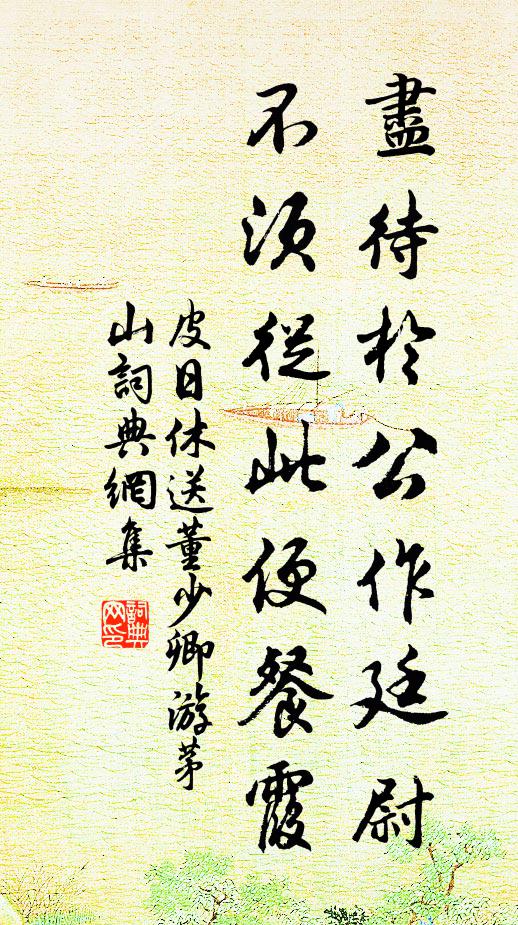 盡待於公作廷尉
不須從此便餐霞
皮日休送董少卿游茅
山詞典網集
詞典
网印